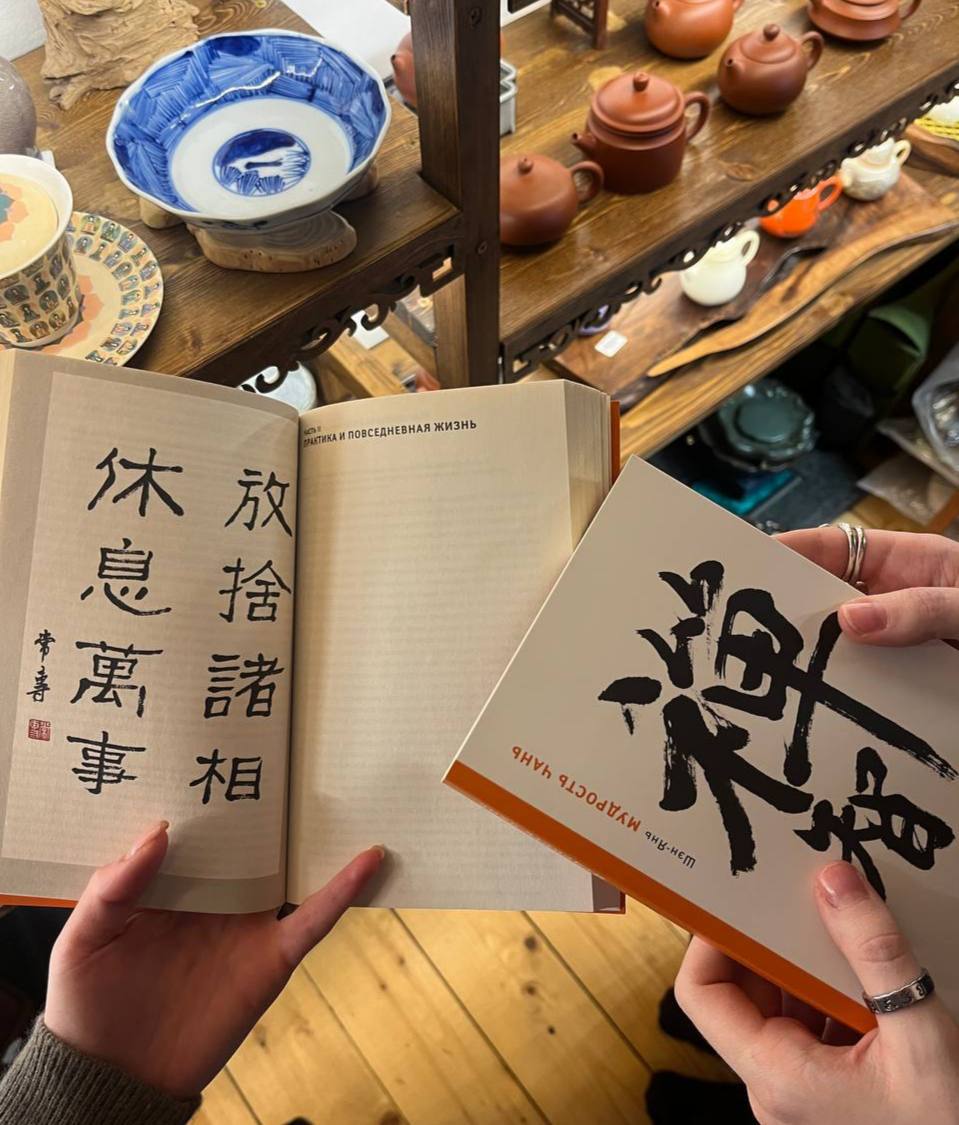 放捨諸相
休息萬事
常壽
ЧАСТЬ II
ПРАКТИКА И ПОВСЕДНЕВНАЯ ЖИЗНЬ
Шэн-Янь
МУДРОСТЬ ЧАНЬ
禪
智